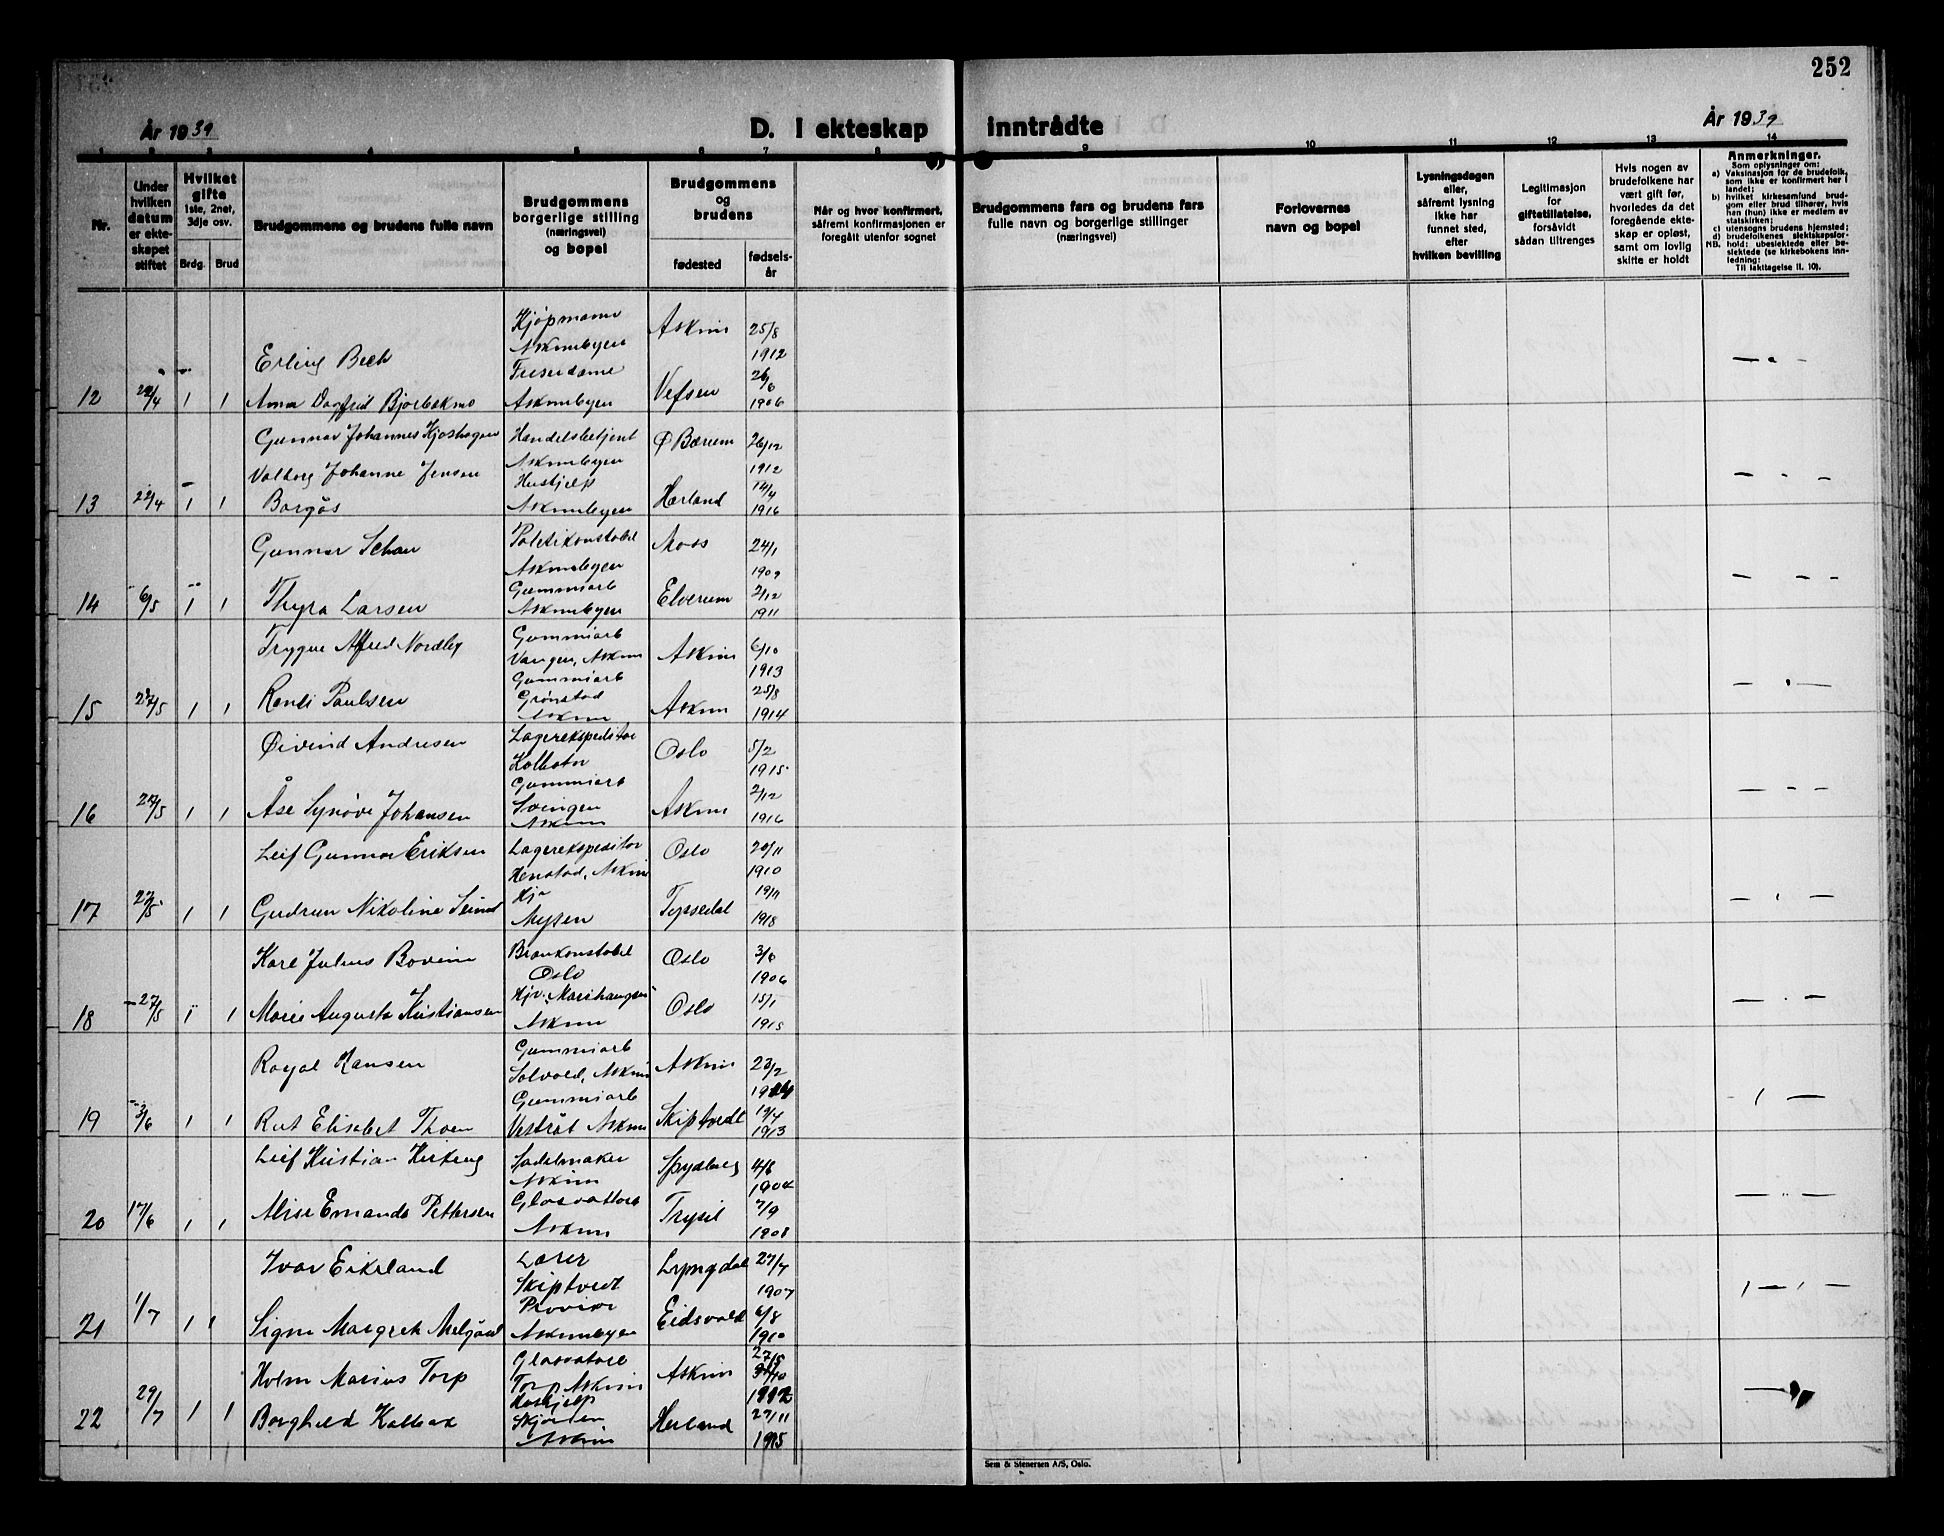 252
År 1939
D. I ekteskap
inntrådte
År 1939
1 2 3 4 5 6 7 8 9 10 11 12 13 14
Nr.
Under hvilken datum er ekteskapet stiftet
Hvilket gifte
1ste, 2net, 3dje osv.
Brdg. Brud
Brudgommens og brudens fulle navn
Brudgommens borgerlige stilling (næringsvei) og bopel
Brudgommens og brudens
fødested
fødsels-år
Når og hvor konfirmert, såfremt konfirmasjonen er foregått utenfor sognet
Brudgommens fars og brudens fars
fulle navn og borgerlige stillinger
(næringsvei)
Forlovernes
navn og bopel
Lysningsdagen
eller,
såfremt lysning
ikke har
funnet sted,
efter
hvilken bevilling
Legitimasjon
for
giftetillatelse,
forsåvidt
sådan tiltrenges
Hvis nogen av
brudefolkene har
vært gift før,
hvorledes da det
foregående ekte-
skap er opløst,
samt om lovlig
skifte er holdt
Anmerkninger.
Som oplysninger om:
a) Vaksinasjon for de brudefolk, som ikke er konfirmert her i landet;
b) hvilket kirkesamfund brudgom eller brud tilhører, hvis han (hun) ikke er medlem av statskirken;
c) utensogns brudens hjemsted;
d) brudefolkenes slektskapsforhold: ubeslektede eller beslektede (se kirkebokens innledning:
NB.
Til Iakttagelse II. 10).
Kjøpmann Askim 25/8
Erling Bech Askimbyen 1912
Friserdame 26/6
12 22/4 1 1 Anna Dagfrid Bjorbekmo Askimbyen Vefsen 1906
Gunnar Johannes Kjoshagen Handelsbetjent Ø Bærum 26/12
Askimbyen 1912
Valborg Johanne Jensen Hushjelp 14/4
13 22/4 1 1 Borgås Askimbyen Hærland 1916
Gunnar Schau Politikonstabel Moss 24/1
Askimbyen 1909
Gummiarb 2/12
14 6/5 1 1 Thyra Larsen Askimbyen Elverum 1911
Trygve Alfred Nordby Gummiarb 6/10
Vangen, Askim Askim 1913
Gummiarb 25/8
15 27/5 1 1 Randi Paulsen Grønstad Askim Askim 1914
Øivind Andresen Lagerekspeditør Oslo 5/2
Kolbotn 1915
Gummiarb 2/12
16 27/5 1 1 Åse Synøve Johansen Svingen Askim Askim 1916
Leif Gunnar Eriksen Lagerekspeditør Oslo 20/11
Henstad, Askim 1910
Hj.
17 27/5 1 1 Gudrun Nikoline Mysen 1918
Kåre Julius Bovim Brankonstabel Oslo 3/6
Oslo 1906
Hjv. Marihaugen 15/1
18 27/5 1 1 Marie Augusta Kristiansen Askim Oslo 1915
Royal Hansen Gummiarb Askim 23/2
Solvold, Askim
Gummiarb 19/4
19 3/6 1 1 Rut Elisabet Thoen Askim Skiptvedt 1913
Leif Kristian Sadelmaker Spydberg 4/6
Askim 1904
7/9
20 17/6 1 1 Alise Emanda Pettersen Askim Trysil 1908
Ivar Eikeland Lærer Lyngdal 27/7
Skiptvedt 1907
6/8
21 1/7 1 1 Signe Margrete Melgård Askimbyen Eidsvold 1910
Holm Marius Torp Torp Askim Askim 27/5
1912
Hushjelp 27/11
22 29/7 1 1 Borghild Askim Herland 1915
Sem & Stenersen A/S, Oslo.